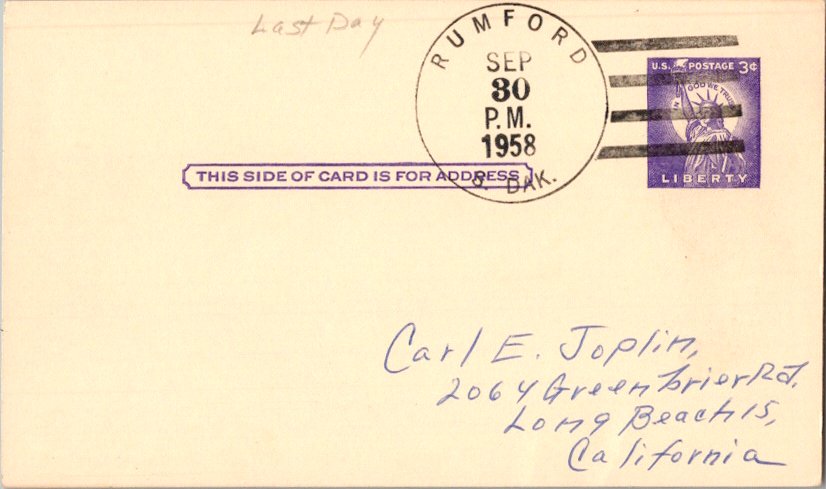 Last Day
RUMFORD
SEP
30
P.M.
1958
S. DAK.
U.S. POSTAGE 3¢
IN GOD WE TRUST
LIBERTY
THIS SIDE OF CARD IS FOR ADDRESS
Carl E. Joplin,
2064 Greenbrier Rd.
Long Beach 15,
California